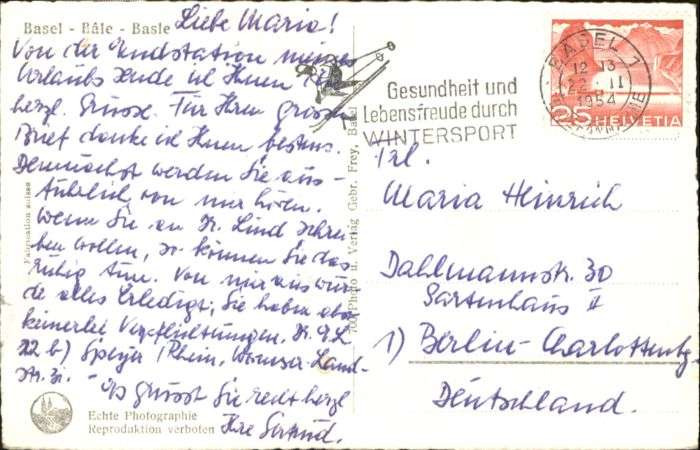 Basel - Bâle - Basle
Liebe Maria!
Von der Endstation meines
Urlaubs sende ich Ihnen
herzl. Grüsse. Für Ihren grossen
Brief danke ich Ihnen bestens.
Demnächst werden Sie aus-
führlich von mir hören.
Wenn Sie an Dr. Lind schrei-
ben wollen, so können Sie das
ruhig tun. Von mir aus wur-
de alles erledigt; Sie haben also
keinerlei Verpflichtungen.
22 b) Speyer/Rhein, Wormser Land-
str.
Es grüsst Sie recht herzl.
Ihre Gertrud.
Fabrication suisse
Echte Photographie
Reproduktion verboten
Photo u. Verlag Gebr. Frey, Basel
Gesundheit und
Lebensfreude durch
WINTERSPORT
BASEL 1
12-13
22. II
1954
25 HELVETIA
Frl.
Maria Heinrich
Dahlmannstr. 30
Gartenhaus II
1) Berlin-Charlottenbg.
Deutschland.